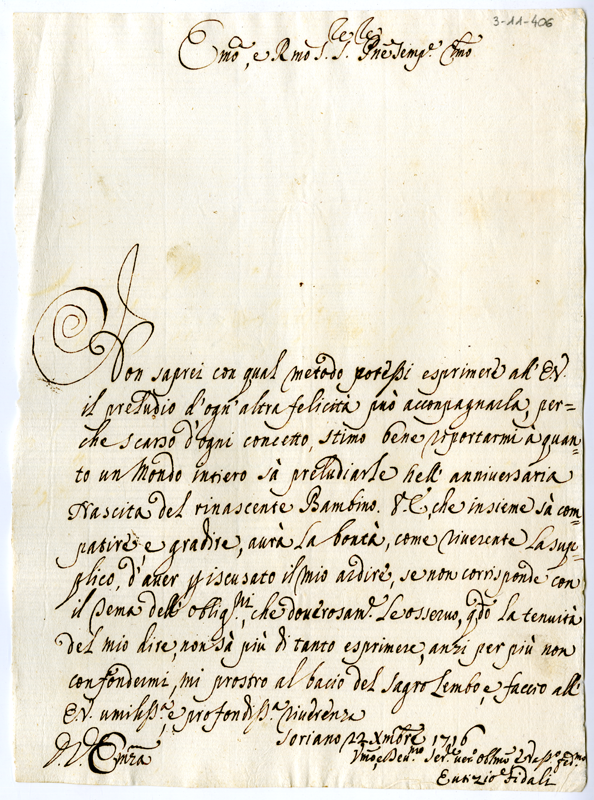 3-11-406
Emo, e Rmo S. S. Pne Semp.e Cmo
Non saprei con qual metodo potessi esprimere all'E.V.
il preludio d'ogn'altra felicità può accompagnarla, per=
che scarso d'ogni concetto, stimo bene riportarmi à quan=
to un Mondo intiero sà preludiarle nell'anniversaria
Nascita del rinascente Bambino. V.E., che insieme sà com=
patire e gradire, aurà la bontà, come riverente la sup=
plico, d'aver p iscusato il mio ardire, se non corrisponde con
il tema dell'oblig.ni, che doverosam.e Le osservo, q.do la tenuità
del mio dire, non sà più di tanto esprimere, anzi per più non
confondermi, mi prostro al bacio del Sagro Lembo, e faccio all'
E.V. umiliss.a, e profondiss.a riverenza
Soriano 22 Xmbre 1716
D. V. Emza
Vmo, e Dev.mo Ser.re ver Obbmo e Vass.o Fid.mo
Eutizio Fidali